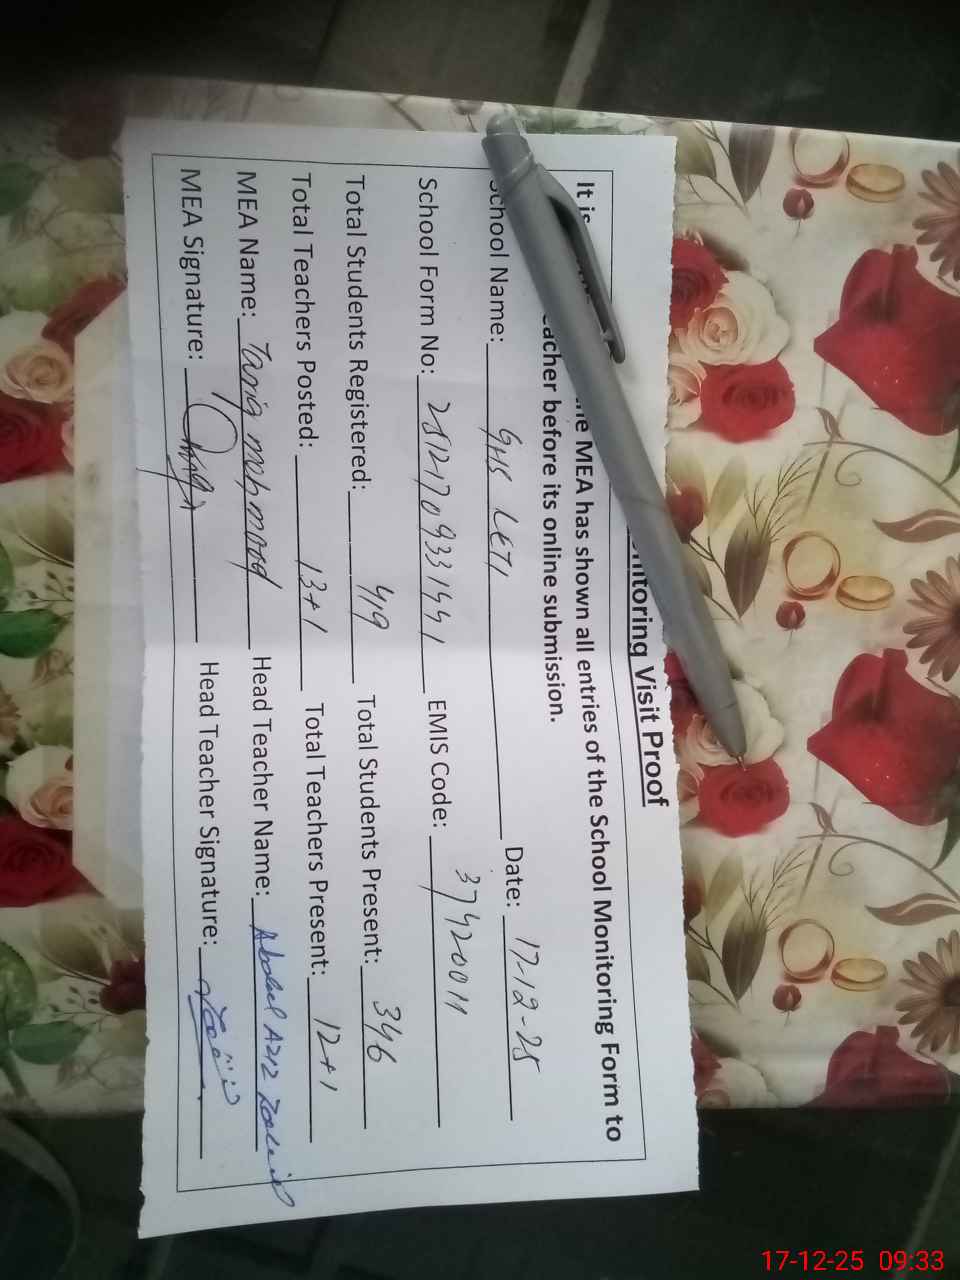 nitoring Visit Proof
It is
he MEA has shown all entries of the School Monitoring Form to
acher before its online submission.
School Name: GHS LETI Date: 17-12-25
School Form No: EMIS Code: 37420011
Total Students Registered: 419 Total Students Present: 346
Total Teachers Posted: 13+1 Total Teachers Present: 12+1
MEA Name: Tariq mehmood Head Teacher Name: Abdul Aziz
MEA Signature: Head Teacher Signature:
17-12-25 09:33